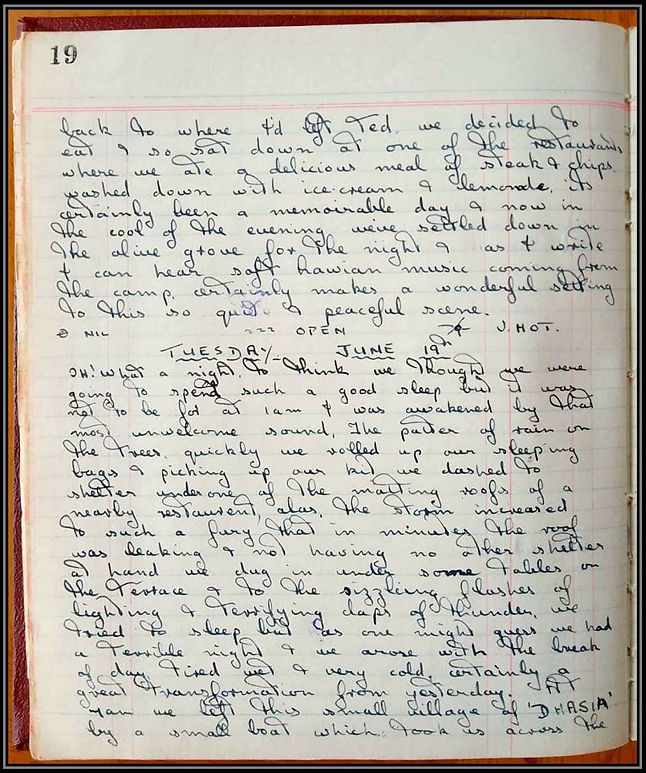 19
back to where I'd left Ted, we decided to
eat & so sat down at one of the restaurants
where we ate a delicious meal of steak & chips
washed down with ice-cream & lemonade, its
certainly been a memoirable day & now in
the cool of the evening weve settled down in
the olive grove for the night & as I write
I can hear soft hawian music coming from
the camp, certainly makes a wonderful setting
to this so quiet & peaceful scene.
NIL OPEN V. HOT.
TUESDAY JUNE 19th
OH! what a night, to think we thought we were
going to spend such a good sleep but it was
not to be for at 1am I was awakened by that
most unwelcome sound, The patter of rain on
the trees, quickly we rolled up our sleeping
bags & picking up our kit we dashed to
shelter under one of the matting roofs of a
nearby restaurent, alas, the storm increased
to such a fury that in minutes the roof
was leaking & not having no other shelter
at hand we dug in under some tables on
the terrace & to the sizzling flashes of
lighting & terrifying claps of thunder, we
tried to sleep but as one might guess we had
a terrible night & we arose with the break
of day, tired wet & very cold, certainly a
great transformation from yesterday. AT
7am we left this small village of 'DHASIA'
by a small boat which took us across the